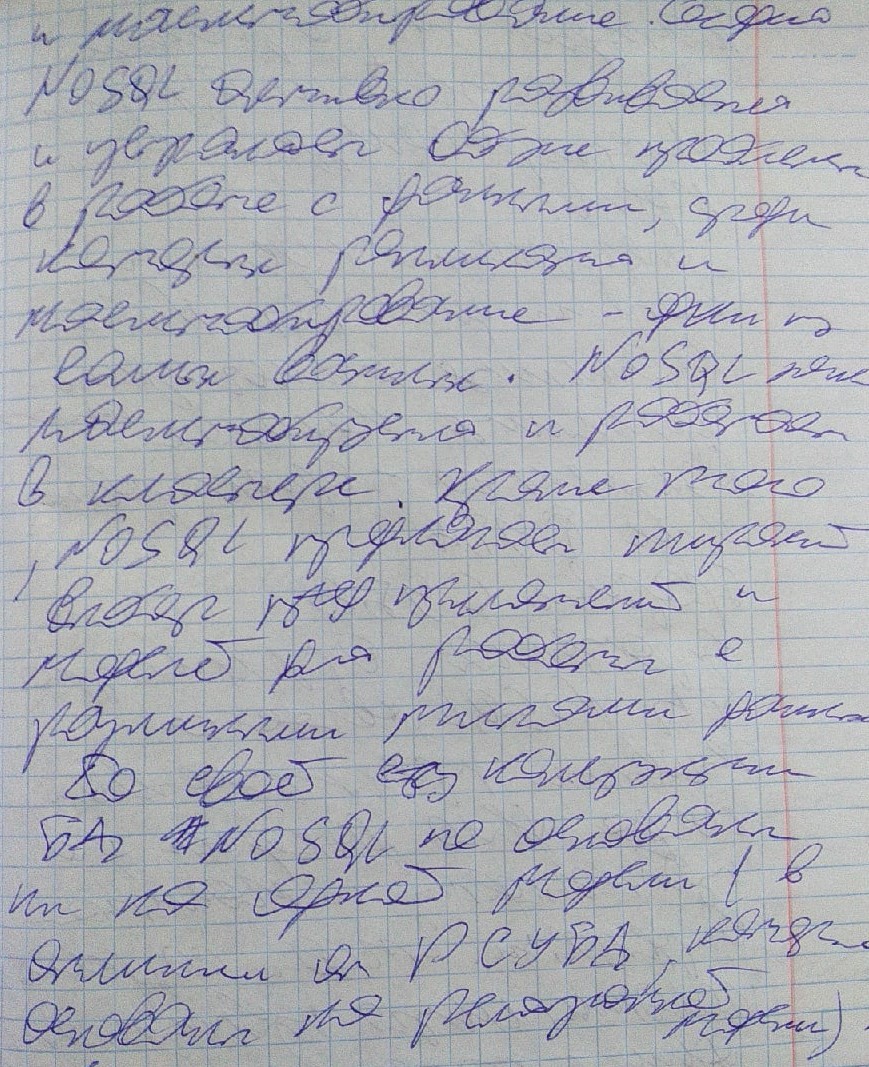 и масштабирование. Сфера
NoSQL активно развивается
и устраняет общие проблемы
в работе с данными, среди
которых репликация и
масштабирование - одни из
самых важных. NoSQL легче
масштабируется и работает
в кластере. Кроме того
, NoSQL предлагает широкий
выбор приложений и
моделей для работы с
различными типами данных
По своей конструкции
БД NoSQL не основаны
ни на одной модели (в
отличии от РСУБД, которые
основаны на реляционной модели)